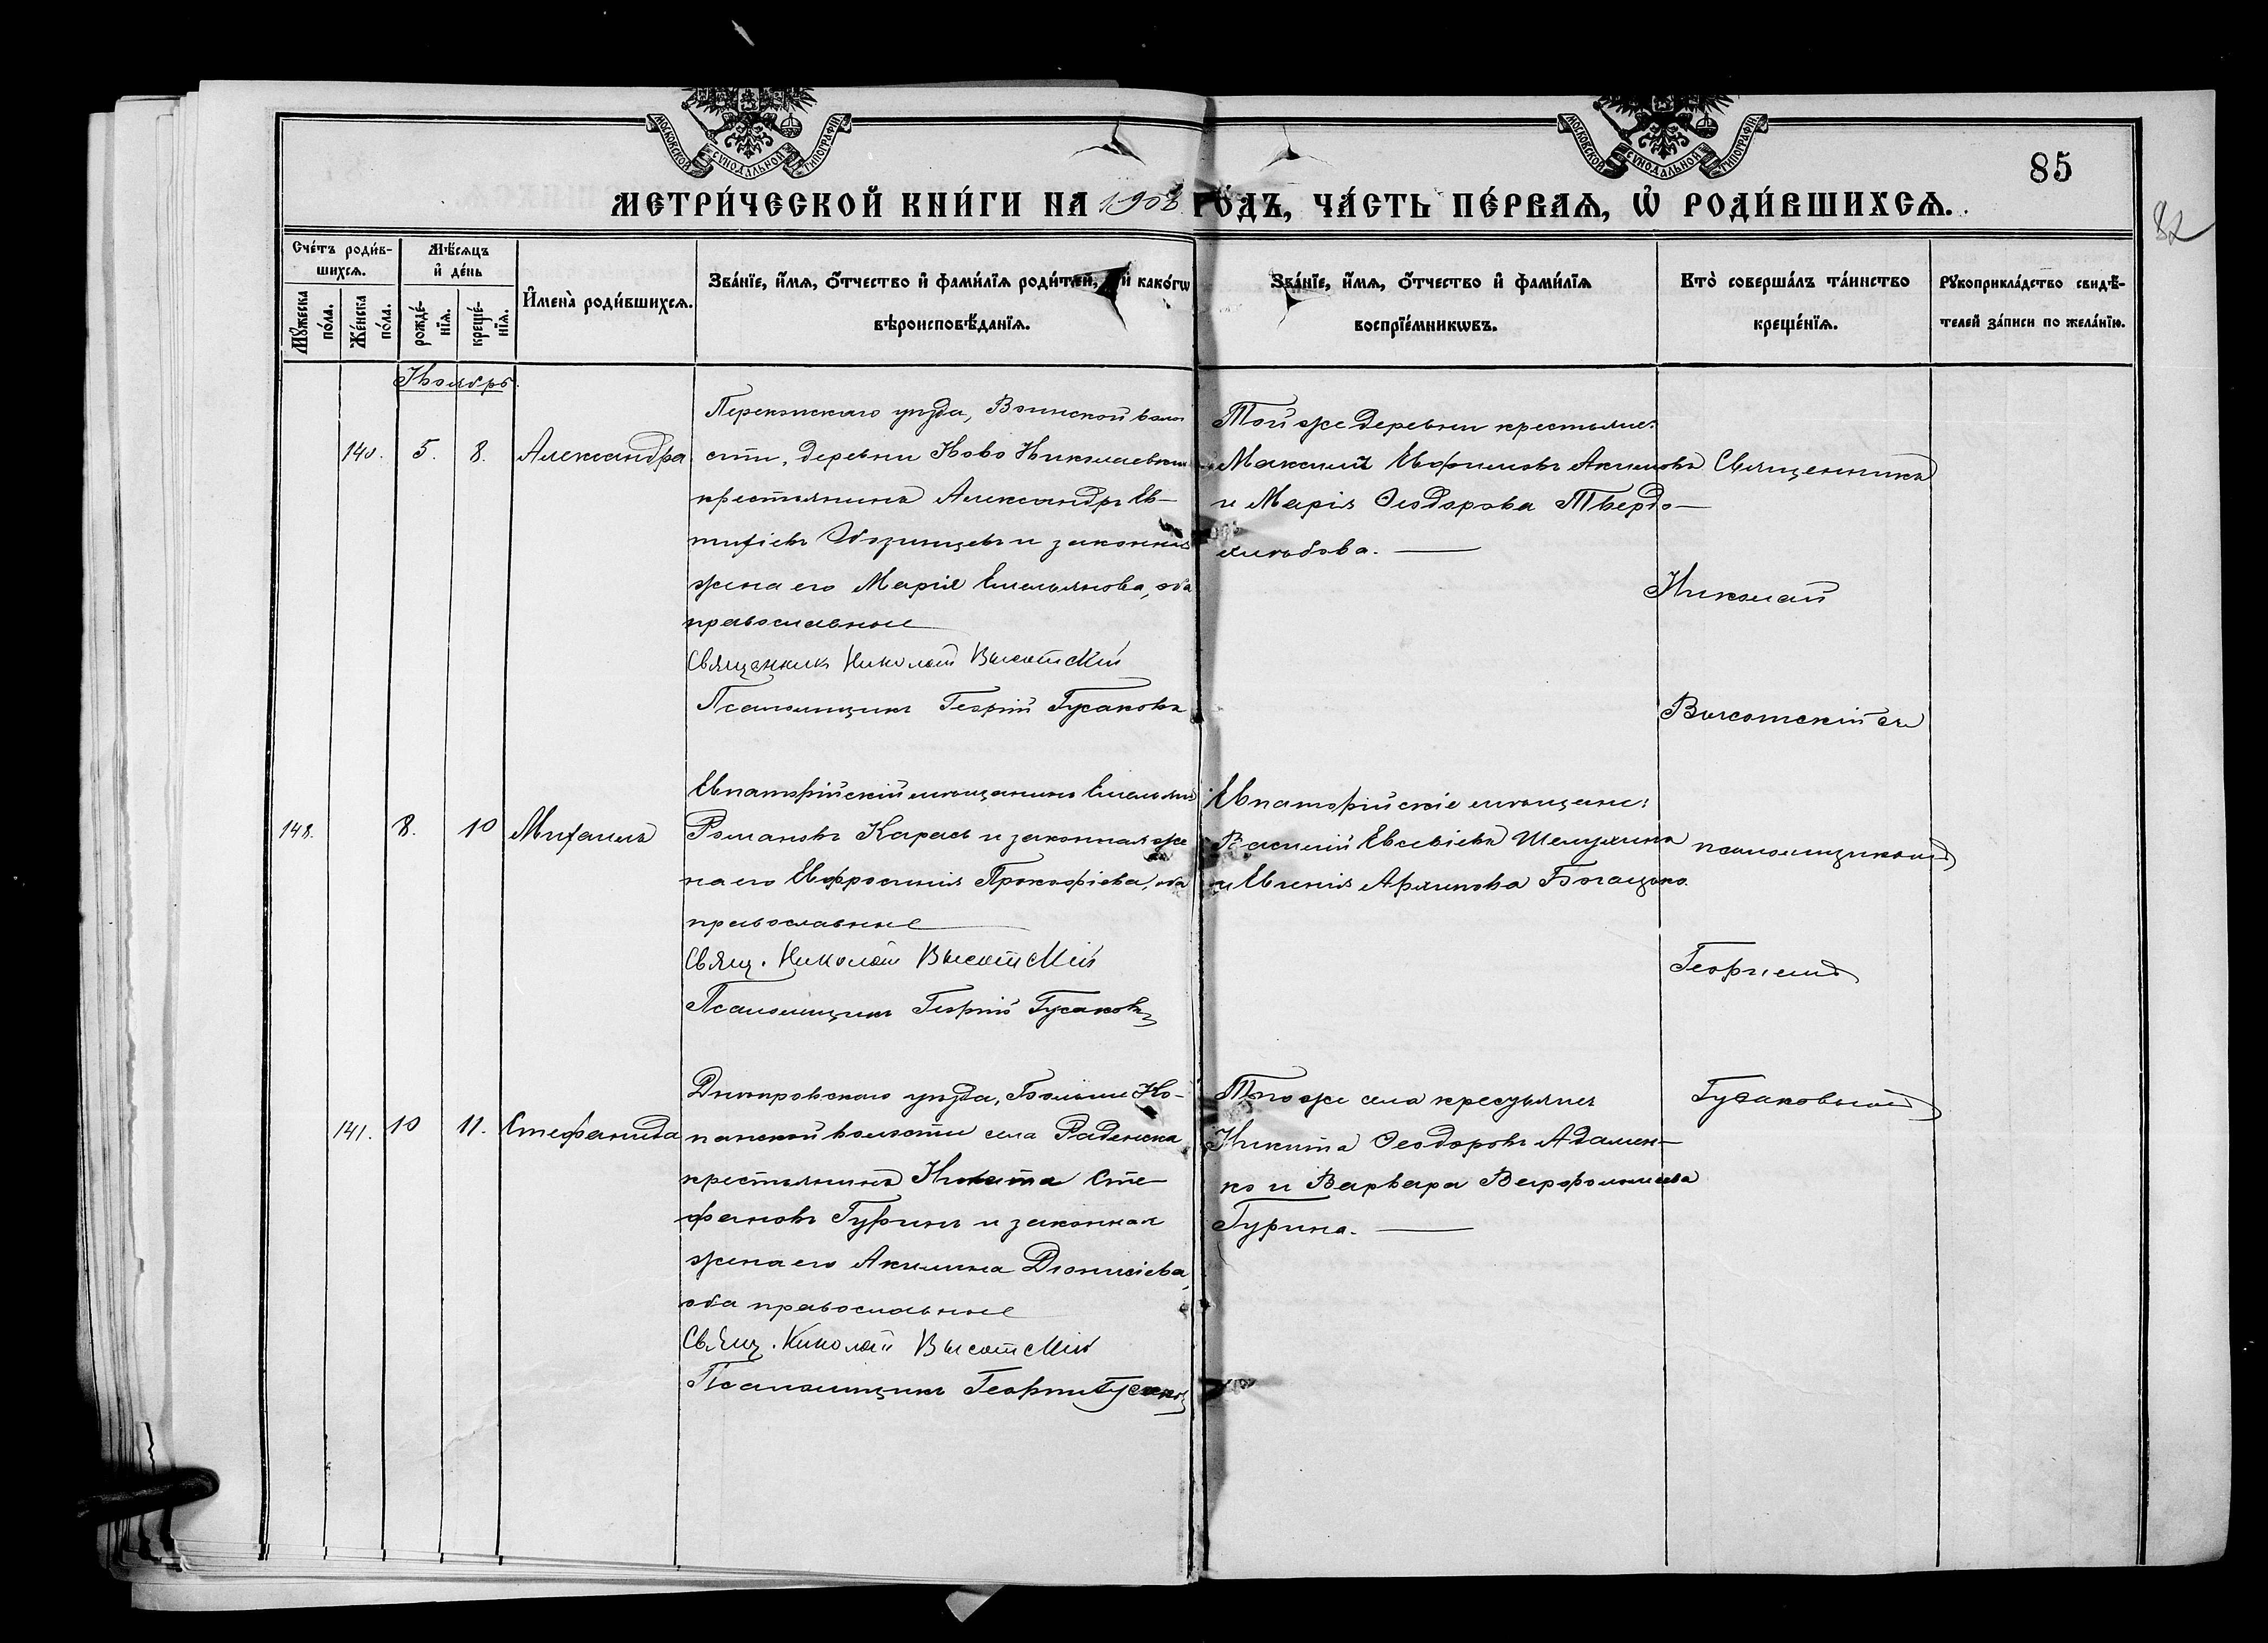 МОСКОВСКОЙ СѴНОДАЛЬНОЙ ТИПОГРАФІИ
МОСКОВСКОЙ СѴНОДАЛЬНОЙ ТИПОГРАФІИ
85
82
МЕТРИ́ЧЕСКОЙ КНИ́ГИ НА 1908 ГО́ДЪ, ЧА́СТЬ ПЕ́РВАѦ, Ѡ҆ РОДИ́ВШИХСѦ.
Сче́тъ роди́в-
шихсѧ.
Мꙋ́жеска по́ла.
Же́нска по́ла.
Мѣ́сѧцъ
и҆ де́нь
рожде́-нїѧ.
креще́-нїѧ.
И҆мена̀ роди́вшихсѧ.
Зва́нїе, и҆́мѧ, ѻ҆́тчество и҆ фами́лїѧ роди́телей, и҆ како́гѡ
вѣроисповѣ́данїѧ.
Зва́нїе, и҆́мѧ, ѻ҆́тчество и҆ фами́лїѧ
воспрїе́мникѡвъ.
Кто̀ соверша́лъ та́инство
креще́нїѧ.
Рꙋкоприкла́дство свидѣ́-
телей за́писи по жела́нїю.
Ноябрь.
140. 5. 8. Александра
Перекопскаго уѣзда, Воинской воло
сти, деревни Ново Николаевки
крестьянинъ Александръ Ев-
тихіевъ и законная
жена его Марія Емельянова, оба
православные
Священникъ Николай Высотскій
Псаломщикъ Георгій Гусаковъ
Той же деревни крестьяне:
Максимъ Евфимовъ Акимовъ
и Марія Ѳеодорова Твердо-
хлѣбова.
Священникъ
Николай
Высотскій съ
148. 8. 10 Михаилъ
Евпаторійскій мѣщанинъ Емельянъ
Романовъ Карась и законная же
на его Евфросинія Прокофіева, оба
православные
Свящ. Николай Высотскій
Псаломщикъ Георгій Гусаковъ
Евпаторійскіе мѣщане:
Василій Евсевіевъ Шелухинъ
и Евгенія Архипова
псаломщикомъ
Георгіемъ
141. 10 11. Стефанида
Днѣпровскаго уѣзда, Больше Ко-
панской волости села Раденска
крестьянинъ Никита Сте-
фановъ Гуринъ и законная
жена его Акилина Діонисіева,
оба православные
Свящ. Николай Высотскій
Псаломщикъ Георгій Гусаковъ
Того же села крестьяне
Никита Ѳеодоровъ Адамен-
ко и Варвара Варфоломеева
Гурина.
Гусаковымъ